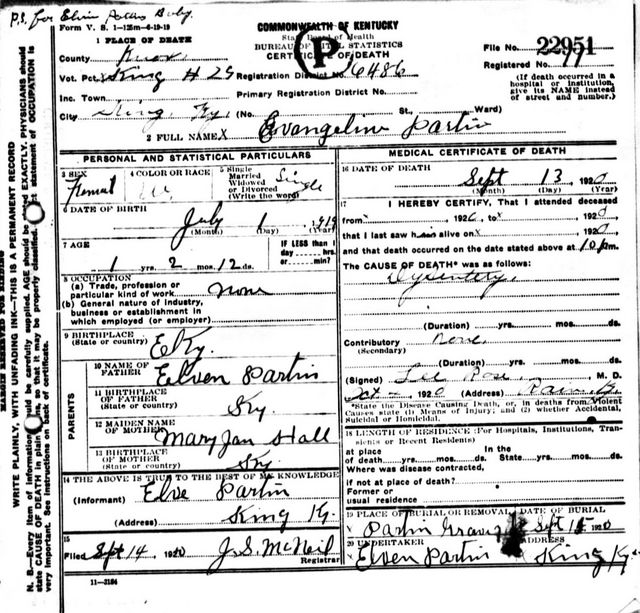 P.S. for Elvin Partins Baby
Form V. S. 1—125m—6-19-19
COMMONWEALTH OF KENTUCKY
State Board of Health
BUREAU OF VITAL STATISTICS
CERTIFICATE OF DEATH
P
1 PLACE OF DEATH
County Knox
File No. 22951
Registered No. 77
Vot. Pct. King # 25 Registration District No. 6486
(If death occurred in a hospital or institution, give its NAME instead of street and number.)
Inc. Town Primary Registration District No.
City King, Ky. (No. St., Ward)
2 FULL NAME Evangeline Partin
PERSONAL AND STATISTICAL PARTICULARS
3 SEX Femal
4 COLOR OR RACE W
5 Single
Married
Widowed
or Divorced
(Write the word) Single
6 DATE OF BIRTH
July 1 1919
(Month) (Day) (Year)
7 AGE
1 yrs. 2 mos. 12 ds.
IF LESS than 1
day, hrs.
or min?
8 OCCUPATION
(a) Trade, profession or
particular kind of work none
(b) General nature of Industry,
business or establishment in
which employed (or employer)
9 BIRTHPLACE
(State or country) E Ky.
PARENTS
10 NAME OF
FATHER Elven Partin
11 BIRTHPLACE
OF FATHER
(State or country) Ky
12 MAIDEN NAME
OF MOTHER Mary Jan Hall
13 BIRTHPLACE
OF MOTHER
(State or country) Ky
14 THE ABOVE IS TRUE TO THE BEST OF MY KNOWLEDGE
(Informant) Elve Partin
(Address) King Ky.
15
Filed Sept 14 1920 J. S. McNeil
Registrar
11—3184
MEDICAL CERTIFICATE OF DEATH
16 DATE OF DEATH
Sept 13 1920
(Month) (Day) (Year)
17 I HEREBY CERTIFY, That I attended deceased
from x 1920, to x 1920
that I last saw h alive on x 1920
and that death occurred on the date stated above at 10 pm.
The CAUSE OF DEATH* was as follows:
Dysentery,
(Duration) yrs. mos. ds.
Contributory None.
(Secondary)
(Duration) yrs. mos. ds.
(Signed) Lee M. D.
1920 (Address)
*State the Disease Causing Death, or, in deaths from Violent
Causes state (1) Means of Injury; and (2) whether Accidental,
Suicidal or Homicidal.
18 LENGTH OF RESIDENCE (For Hospitals, Institutions, Transients or Recent Residents)
at place In the
of death yrs. mos. ds. State yrs. mos. ds.
Where was disease contracted,
if not at place of death?
Former or
usual residence
19 PLACE OF BURIAL OR REMOVAL DATE OF BURIAL
Partin Graves Sept 15 1920
20 UNDERTAKER ADDRESS
Elven Partin King Ky.
MARGIN RESERVED FOR BINDING
WRITE PLAINLY, WITH UNFADING INK—THIS IS A PERMANENT RECORD
N. B.—Every item of information should be carefully supplied. AGE should be stated EXACTLY. PHYSICIANS should
state CAUSE OF DEATH in plain terms, so that it may be properly classified. Exact statement of OCCUPATION is
very important. See instructions on back of certificate.